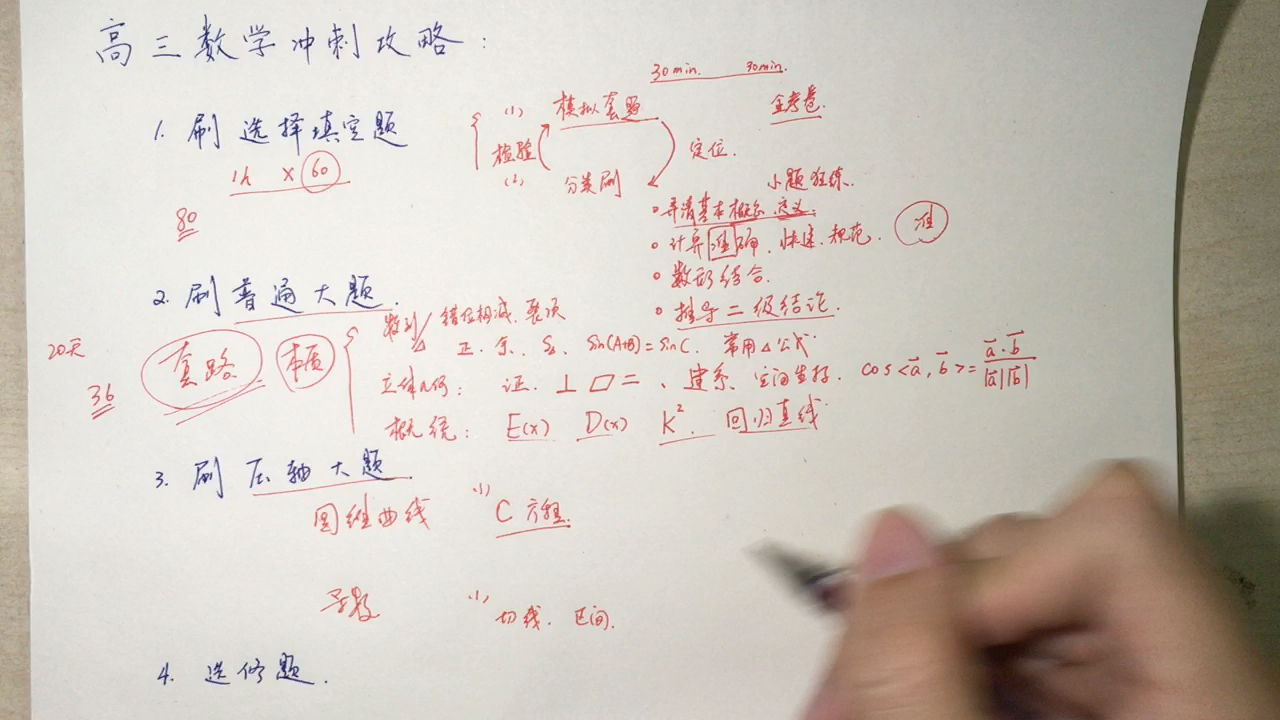 高三数学冲刺攻略:
30min. 30min.
1. 刷选择填空题
(1) 模拟套题 金考卷.
检验 定位.
(2) 分类刷 小题狂练.
1h ×60
80
弄清基本概念.定义.
计算准确.快速.规范. 准
数形结合.
推导二级结论.
2. 刷普通大题.
20天
36
套路 本质
数列/△ 错位相减.裂项
正.余.S△. sin(A+B)=sinC. 常用△公式.
立体几何: 证.⊥▱=、建系、空间坐标. cos<a⃗,b⃗>=a⃗·b⃗/|a⃗||b⃗|
概统: E(x) D(x) K². 回归直线.
3. 刷压轴大题.
圆锥曲线 (1) C方程.
导数 (1) 切线.区间.
4. 选修题.